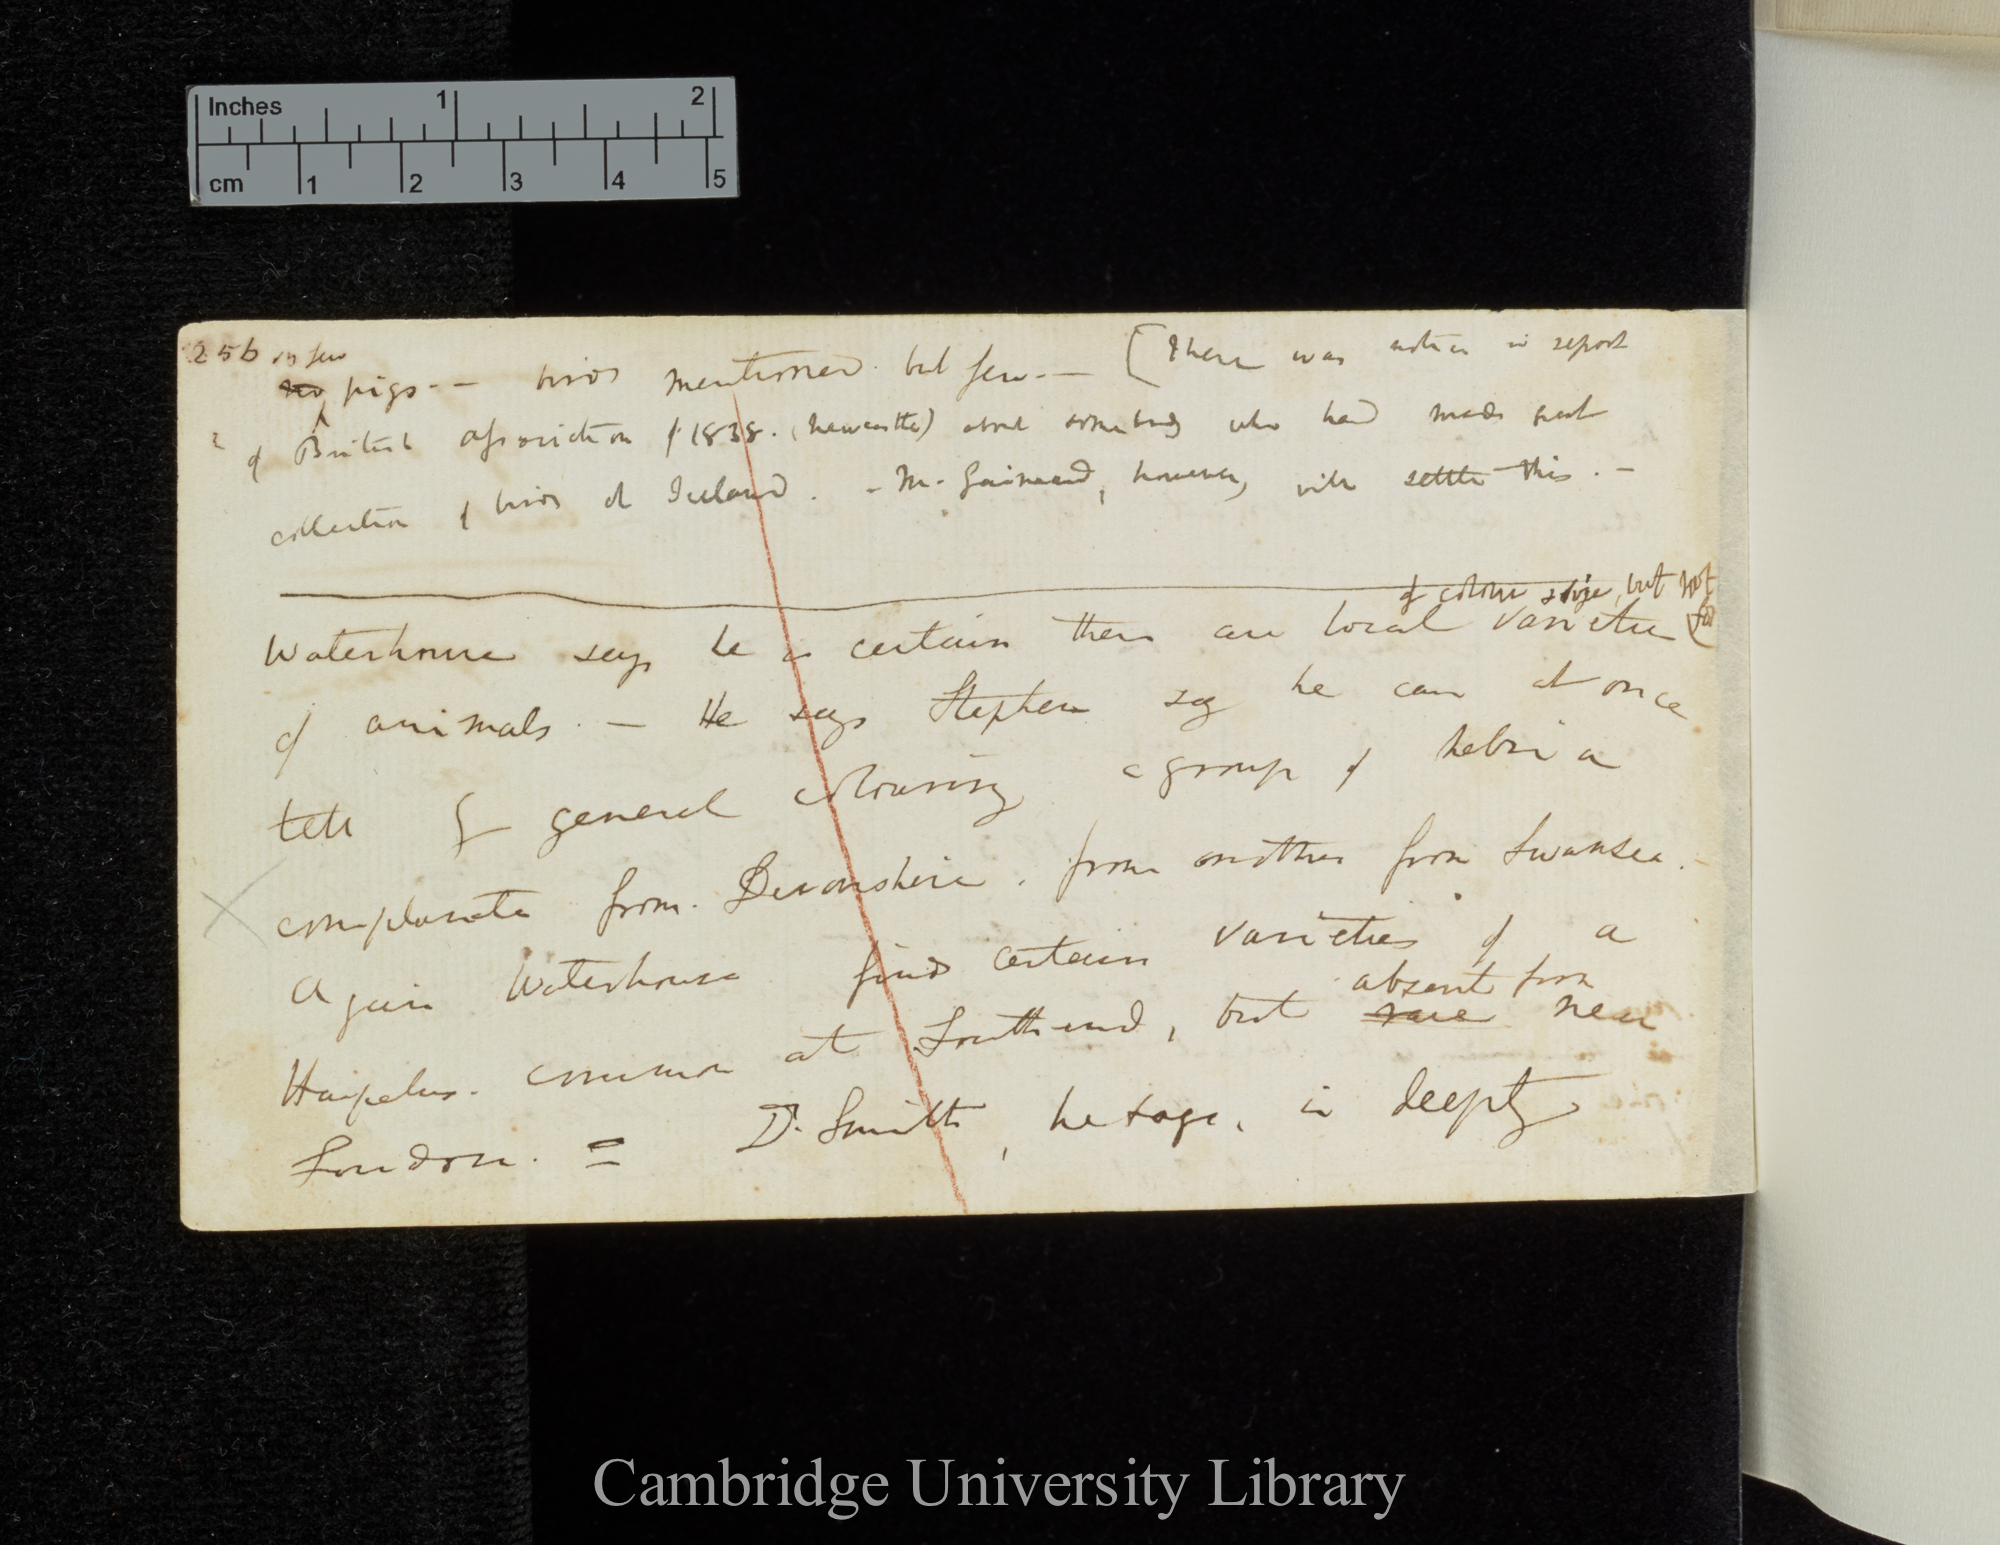 Inches 1 2
cm 1 2 3 4 5
256 very few
no pigs. — birds mentioned. but few. — [There was notice in report
of British Association of 1838. (Newcastle) about somebody who had made great
collection of birds of Iceland. — M. Gaimard, however, will settle this. —
of colour & size, but not form
Waterhouse says he is certain there are local varieties
of animals. — He says Stephens says he can at once
tell by general colouring a group of Nebria
complanata from Devonshire, from another from Swansea.
Again Waterhouse finds certain varieties of a
absent from
Harpalus common at Southend, but rare near
London. = Dr. Smith, he says, is deeply
Cambridge University Library